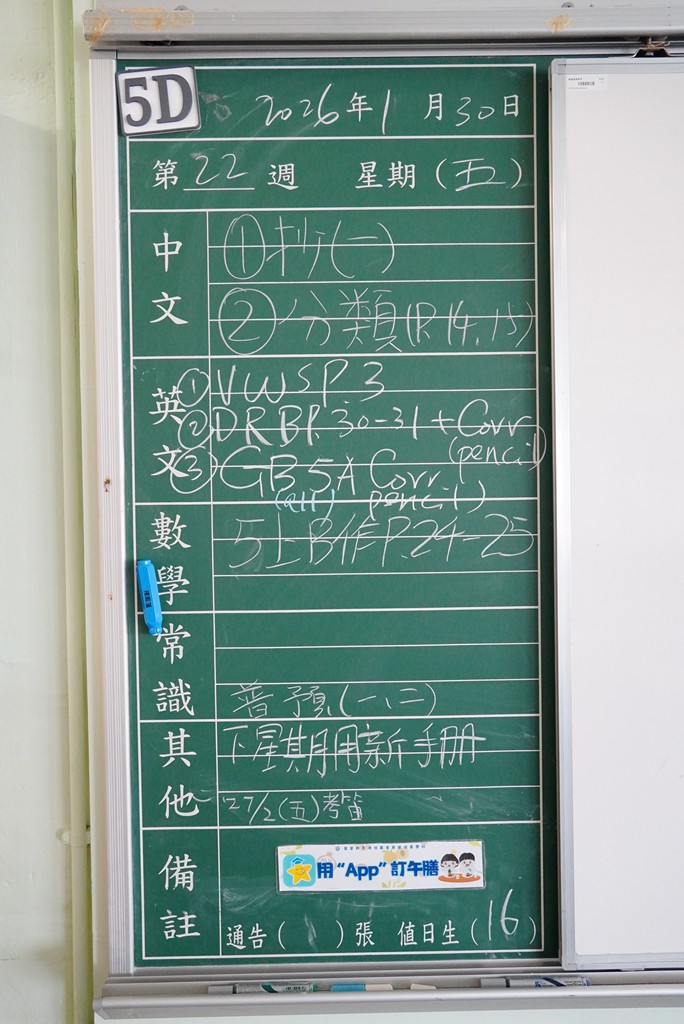 5D
2026年1月30日
第22週 星期(五)
中文
①抄(一)
②分類(P.14,15)
英文
①VWSP3
②DRBP.30-31+Corr
(pencil)
③GB5A Corr
(all) pencil)
數學
5上B作P.24-25
常識
普預(一、二)
其他
下星期用新手冊
27/2(五)考笛
備註
用“App”訂午膳
通告( )張 值日生(16)